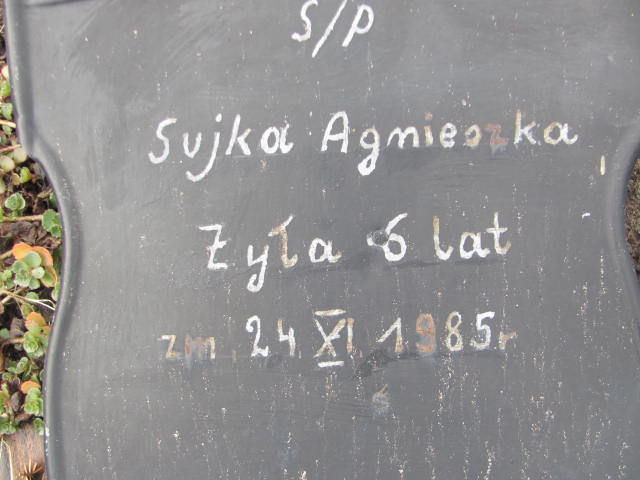 S/P
Sujka Agnieszka
Żyła 6 lat
zm. 24 XI. 1985r